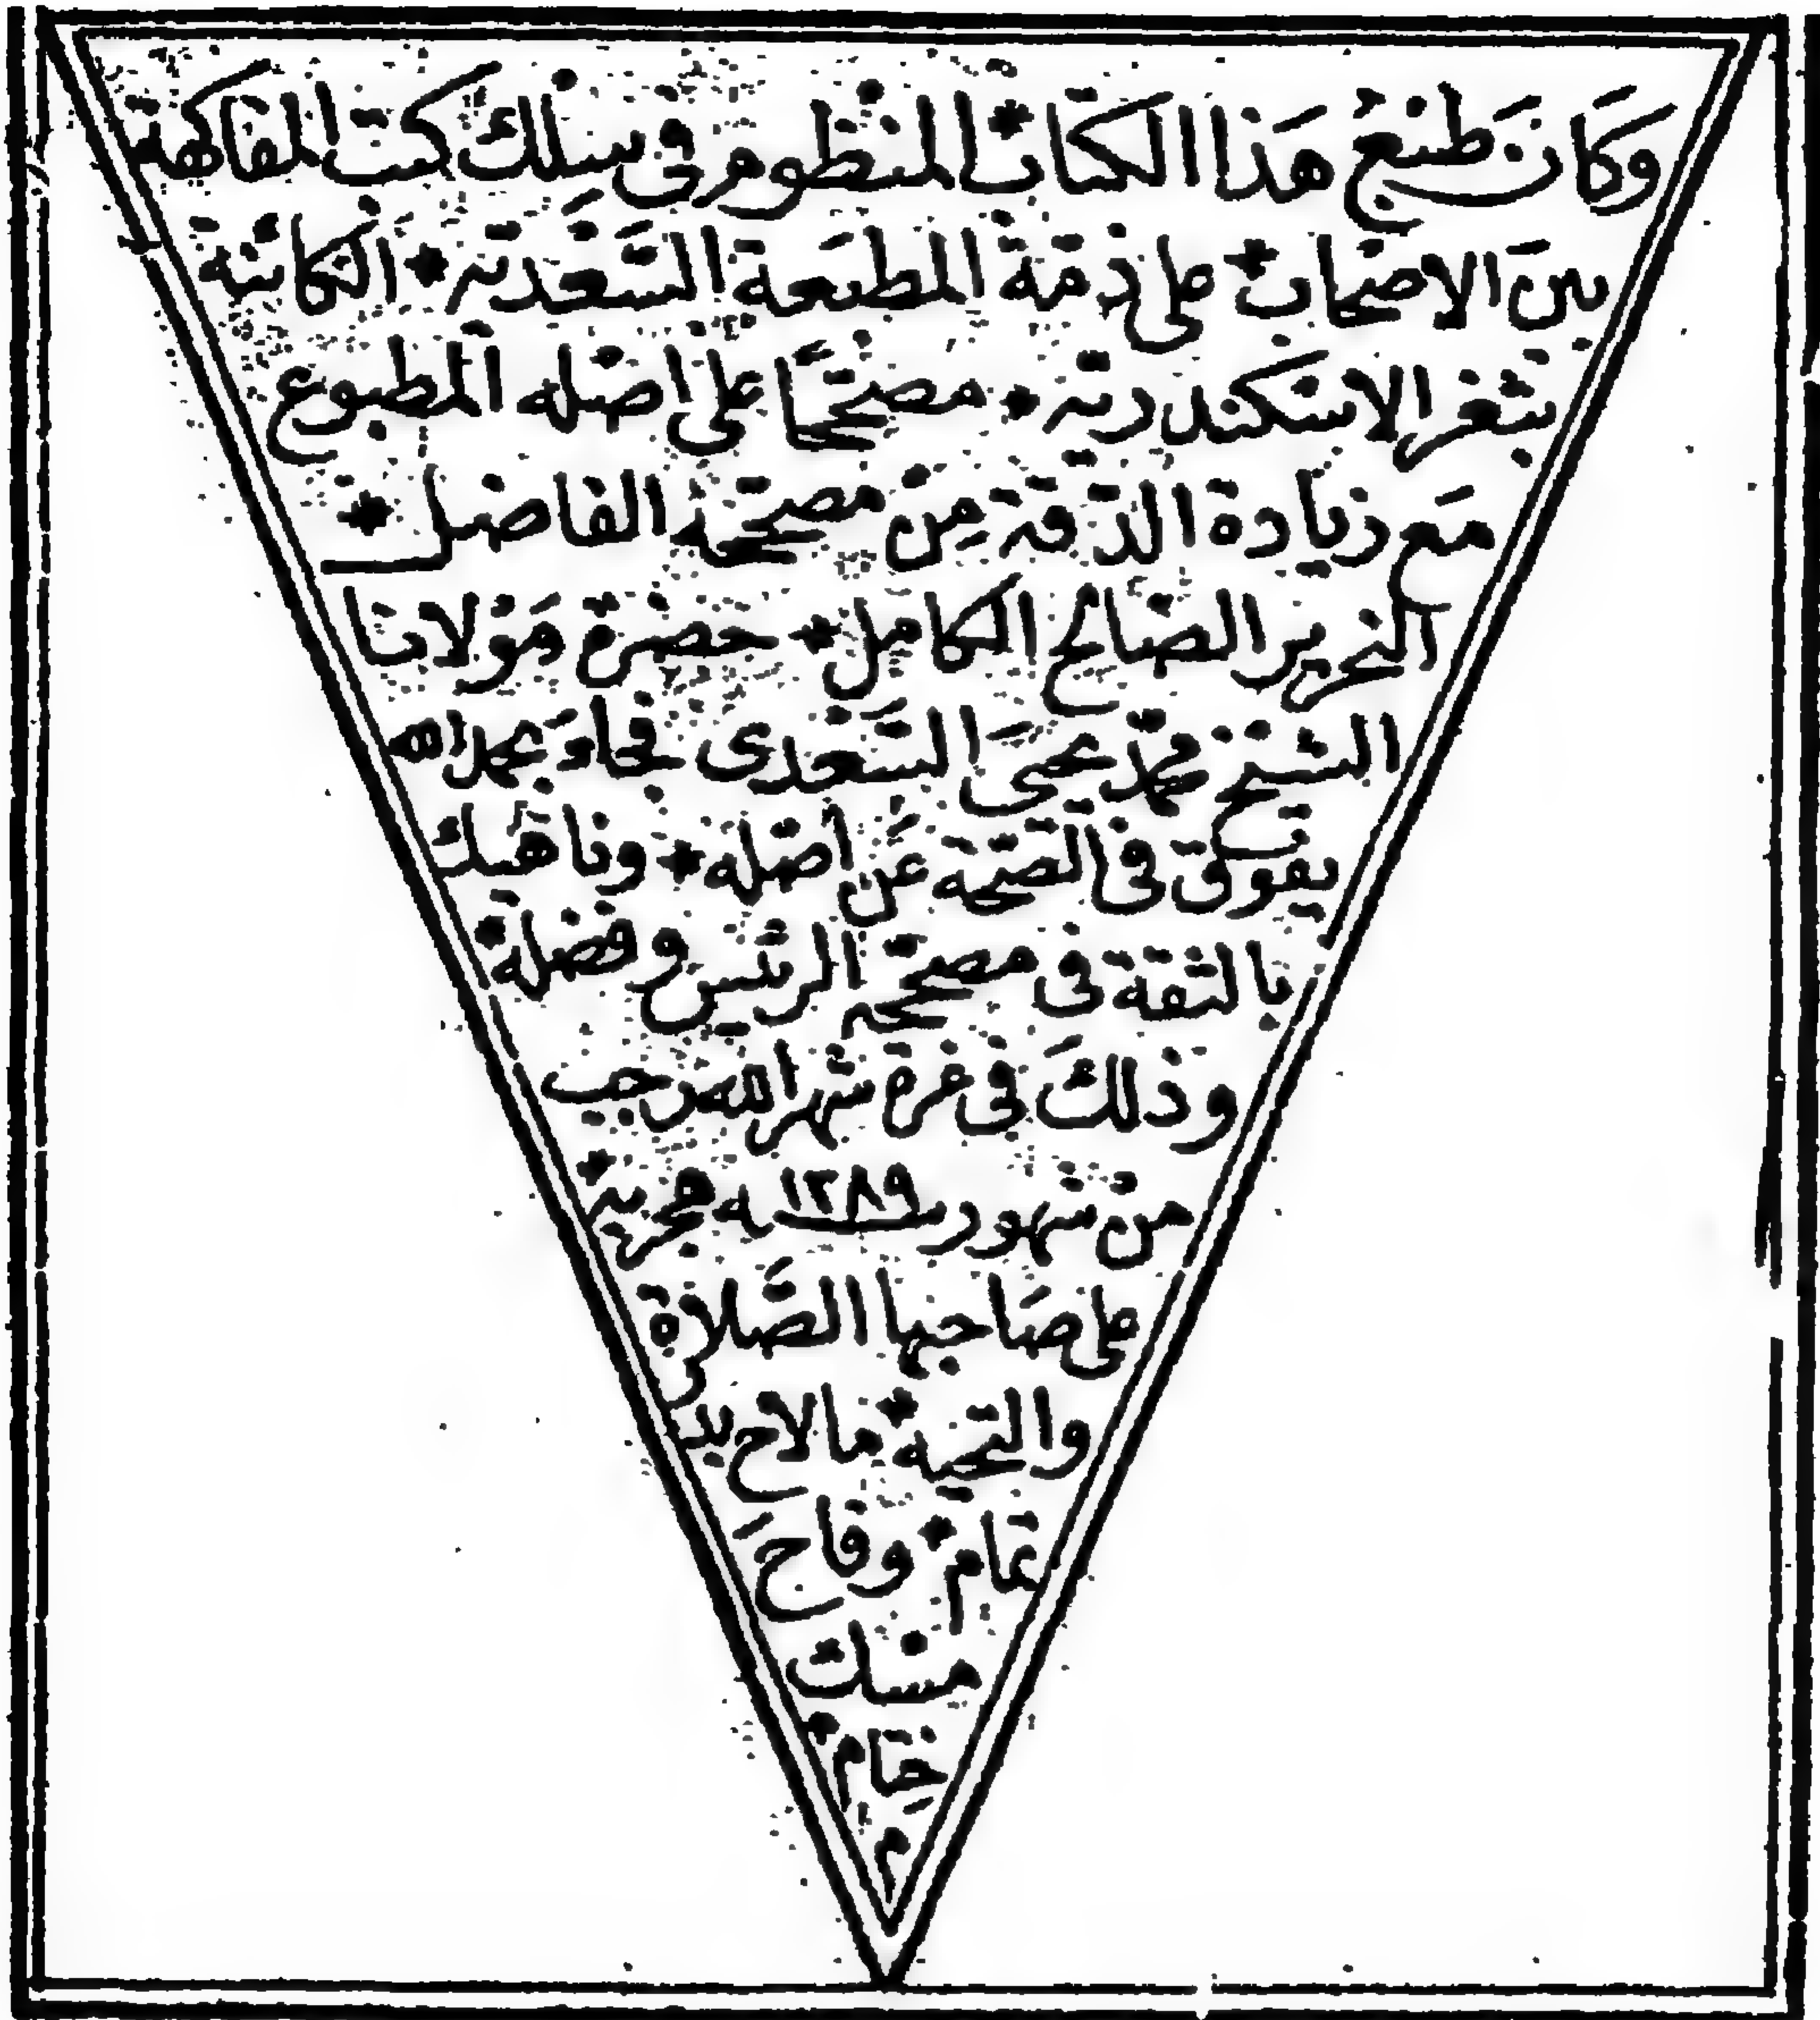 وكان طبع هذا الكتاب * المنظوم في سلك كتب المفاكهة
بين الاصحاب * على ذمة المطبعة السعدية * الكائنة
بثغر الاسكندرية * مصححا على اصله المطبوع
مع زيادة الدقة من مصححه الفاضل *
النحرير الصالح الكامل * حضرة مولانا
الشيخ محمد يحيى السعدى فجاء بحمد الله
يفوق في الصحة عن اصله * وناهيك
بالثقة في مصححه الرئيس وفضله *
وذلك في غرة شهر الله رجب
من شهور سنة ١٢٨٩ هجرية *
على صاحبها الصلاة
والتحية * ما لاح بدر
تمام * وفاح
مسك
ختام *
م